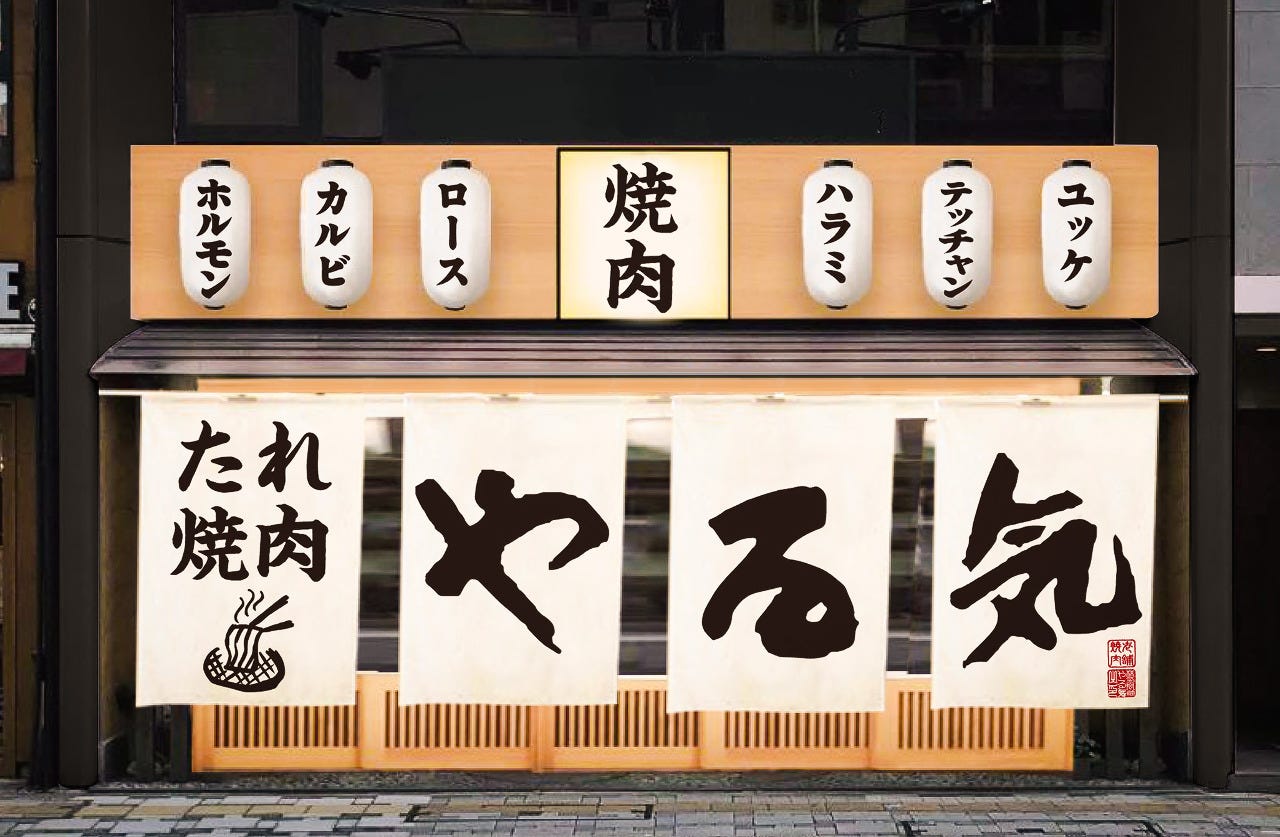 ホルモン
カルビ
ロース
焼肉
ハラミ
テッチャン
ユッケ
たれ
焼肉
やる気
E